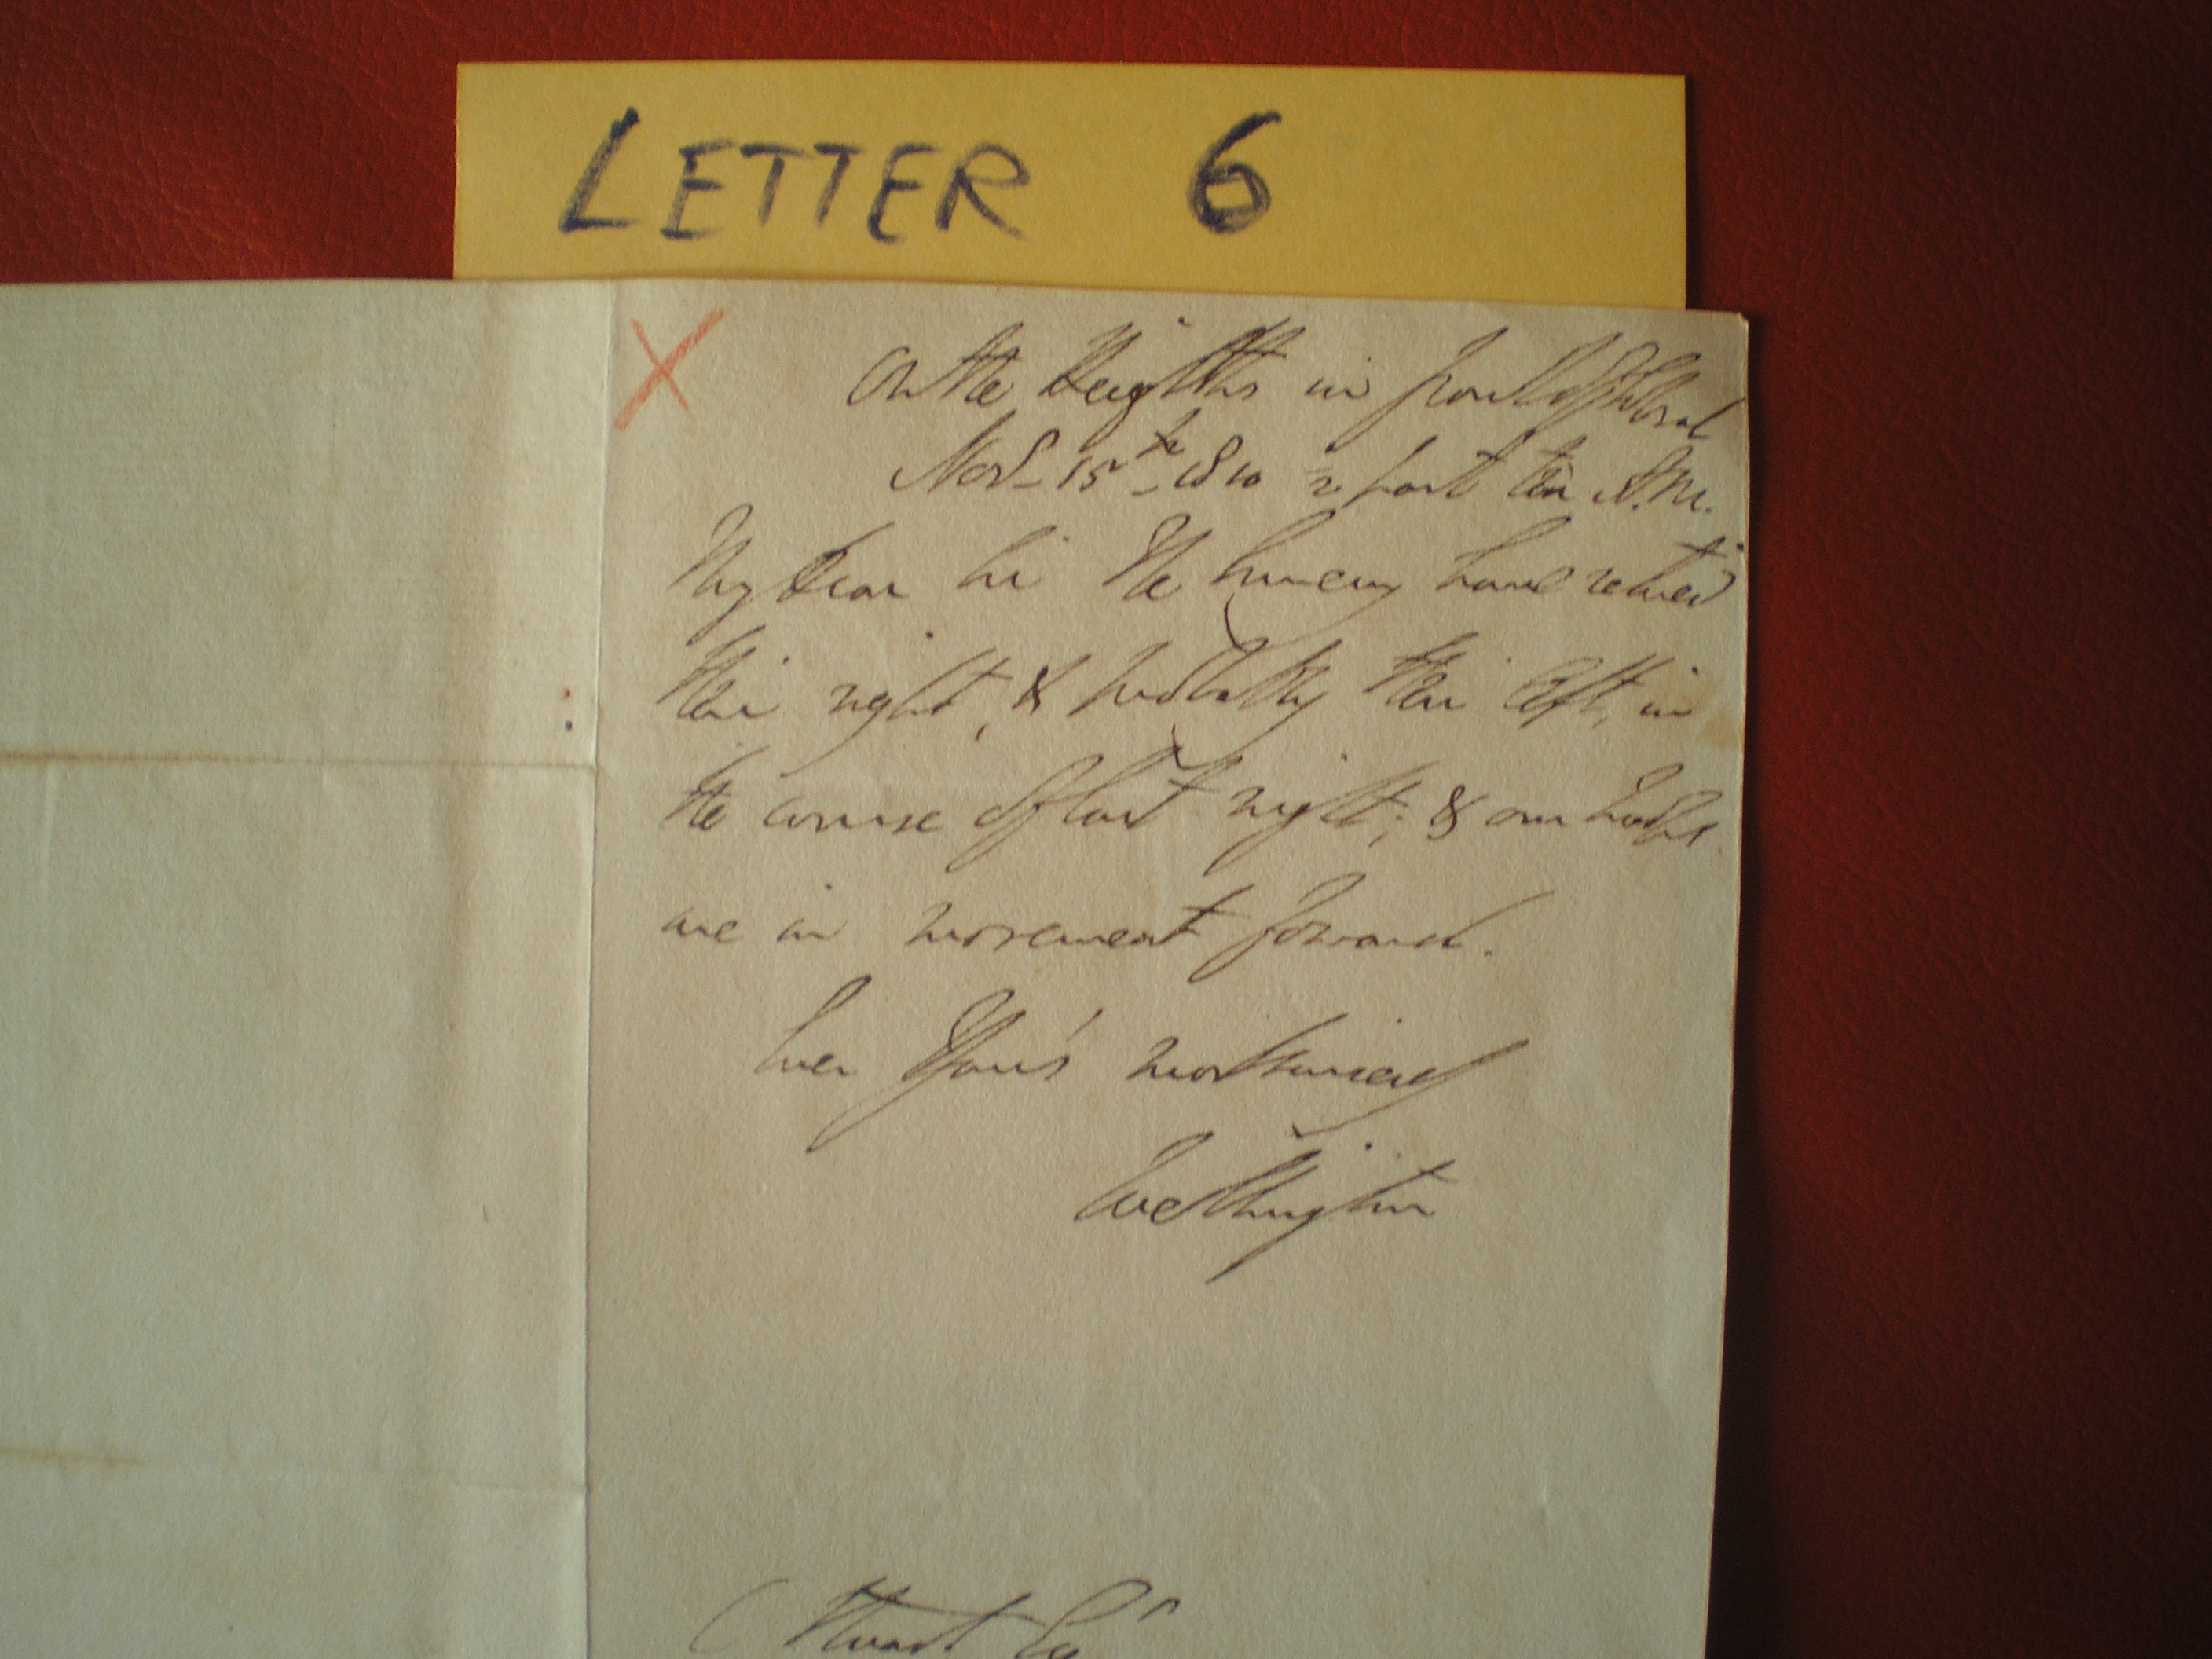 LETTER 6
On the Heigths in front of Sobral
Nov. 15th 1810 ½ past ten A.M.
My dear Sir The Enemy have retired
their right, & probably their left, in
the course of last night; & our troops
are in movement forward.
Ever Yours' most sincerely
Wellington
C Stuart Esqr